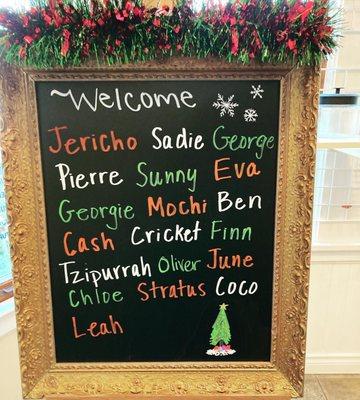 ~Welcome
Jericho Sadie George
Pierre Sunny Eva
Georgie Mochi Ben
Cash Cricket Finn
Tzipurrah Oliver June
Chloe Stratus Coco
Leah